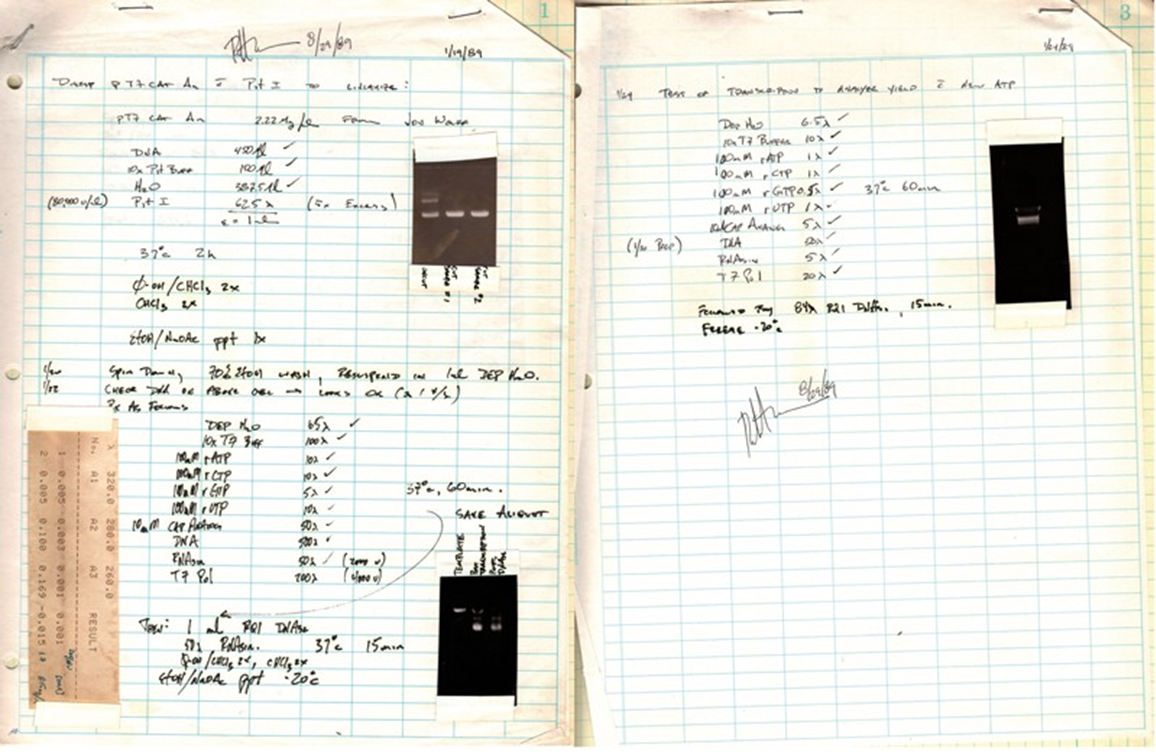 1
8/29/89
1/19/89
Digest pT7 CAT An c̄ Pst I to linearize:
pT7 CAT An 2.22 mg/ml From Jon Wolff
DNA 450λ ✓
10x Pst Buff 100λ ✓
H2O 387.5λ ✓
(80,000 u/ml) Pst I 62.5λ (5x Excess)
ε = 1 ml
37°c 2h
Φ-OH/CHCl3 2x
CHCl3 2x
EtOH/NaOAc ppt 1x
UNCUT
CUT
CUT
1/20 Spin Down, 70% EtOH wash, Resuspend in 1 ml DEP H2O.
1/22 CHECK DNA on ABOVE GEL → looks OK
Rx As Follows
DEP H2O 65λ ✓
10x T7 Buff 100λ ✓
100mM rATP 10λ ✓
100mM rCTP 10λ ✓
100mM rGTP 5λ ✓
100mM rUTP 10λ ✓
10mM CAP Analog 50λ ✓
DNA 500λ ✓
RNAsin 50λ ✓ (2000 u)
T7 Pol 200λ
37°c, 60min.
SAVE ALIQUOT
TEMPLATE
Then: 1 ml RQ1 DNAse
50λ RNAsin. 37°c 15min
Φ-OH/CHCl3 2x, CHCl3 2x
EtOH/NaOAc ppt -20°c
λ 320.0 280.0 260.0
No. A1 A2 A3 RESULT
1 0.005 0.003 0.001 0.001
2 0.005 0.100 0.169 -0.015
3
1/24/89
1/24 TEST OF TRANSCRIPTION TO ANALYZE YIELD c̄ NEW ATP
DEP H2O 6.5λ ✓
10x T7 Buffer 10λ ✓
100mM rATP 1λ ✓
100mM rCTP 1λ ✓
100mM rGTP 0.5λ ✓ 37°c 60min
100mM rUTP 1λ ✓
10mM CAP ANALOG 5λ ✓
DNA 50λ ✓
RNAsin 5λ ✓
T7 Pol 20λ ✓
Followed by 84λ RQ1 DNAse, 15min.
FREEZE -20°c
8/29/89